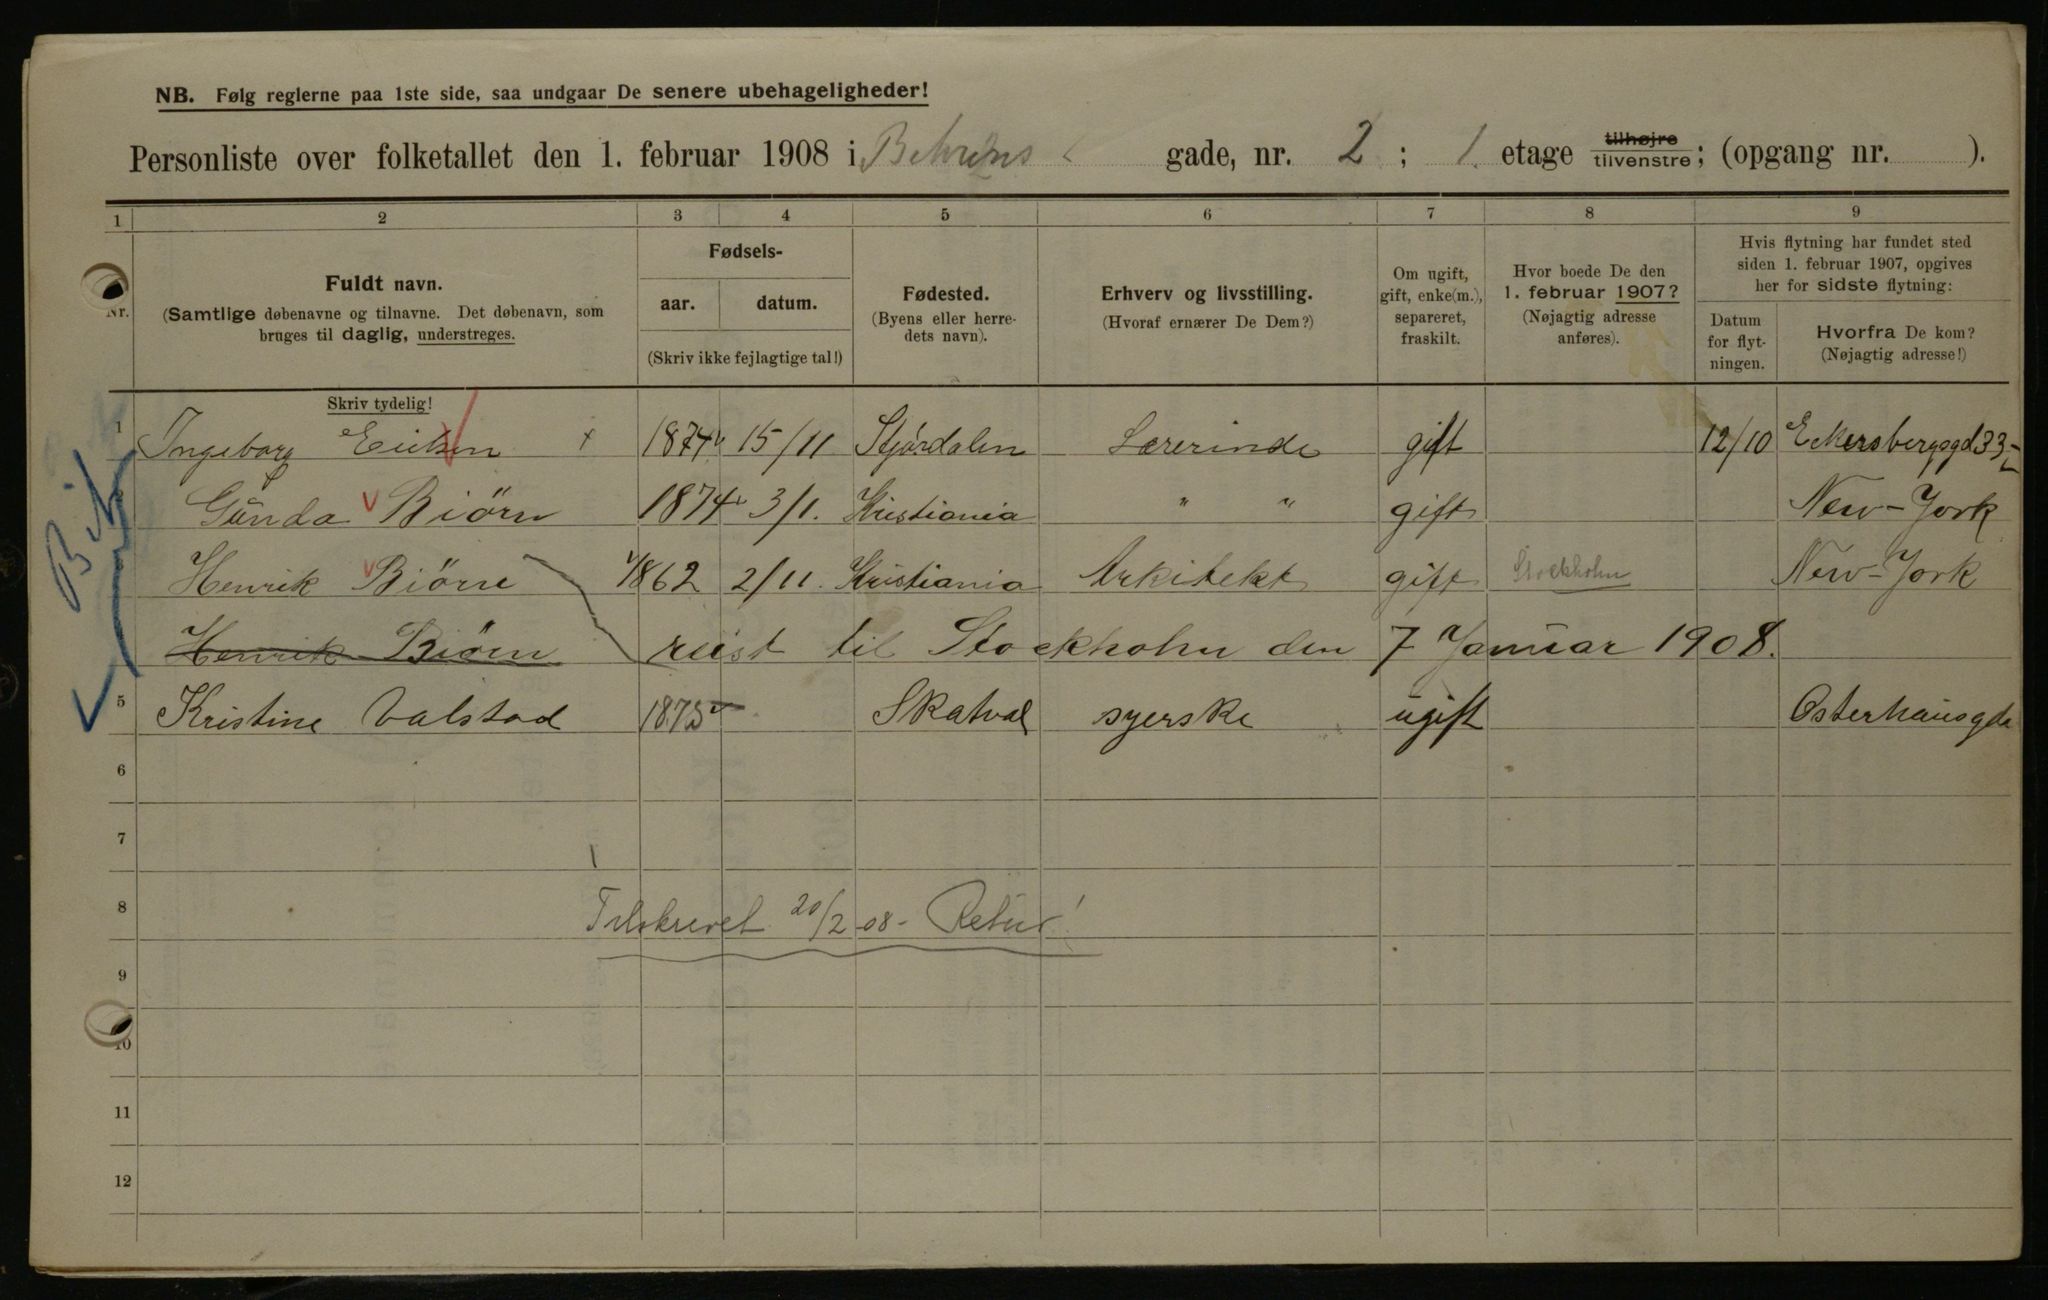 NB. Følg reglerne paa 1ste side, saa undgaar De senere ubehageligheder!
Personliste over folketallet den 1. februar 1908 i Behrens gade, nr. 2 ; 1. etage tilhøjre tilvenstre; (opgang nr. ).
1 2 3 4 5 6 7 8 9
Nr.
Fuldt navn.
(Samtlige døbenavne og tilnavne. Det døbenavn, som
bruges til daglig, understreges.
Skriv tydelig!
Fødsels-
aar. datum.
(Skriv ikke fejlagtige tal!)
Fødested.
(Byens eller herre-
dets navn).
Erhverv og livsstilling.
(Hvoraf ernærer De Dem?)
Om ugift,
gift, enke(m.),
separeret,
fraskilt.
Hvor boede De den
1. februar 1907?
(Nøjagtig adresse
anføres).
Hvis flytning har fundet sted
siden 1. februar 1907, opgives
her for sidste flytning:
Datum
for flyt-
ningen.
Hvorfra De kom?
(Nøjagtig adresse!)
1 Ingeborg Eriksen 1874 15/11 Stjórdalen Lærerinde gift 12/10 Eckersbergsgd 33
Gunda Biörn 1874 3/1. Kristiania " " gift New-York
Henrik Biörn 1862 2/11. Kristiania Arkitekt gift Stockholm New-York
Henrik Biörn reist til Stockholm den 7 Januar 1908.
5 Kristine Valstad 1875 Skatval syerske ugift Osterhausgde
6
7
8 Tilskrevet 20/2 08 - Retur!
9
10
11
12